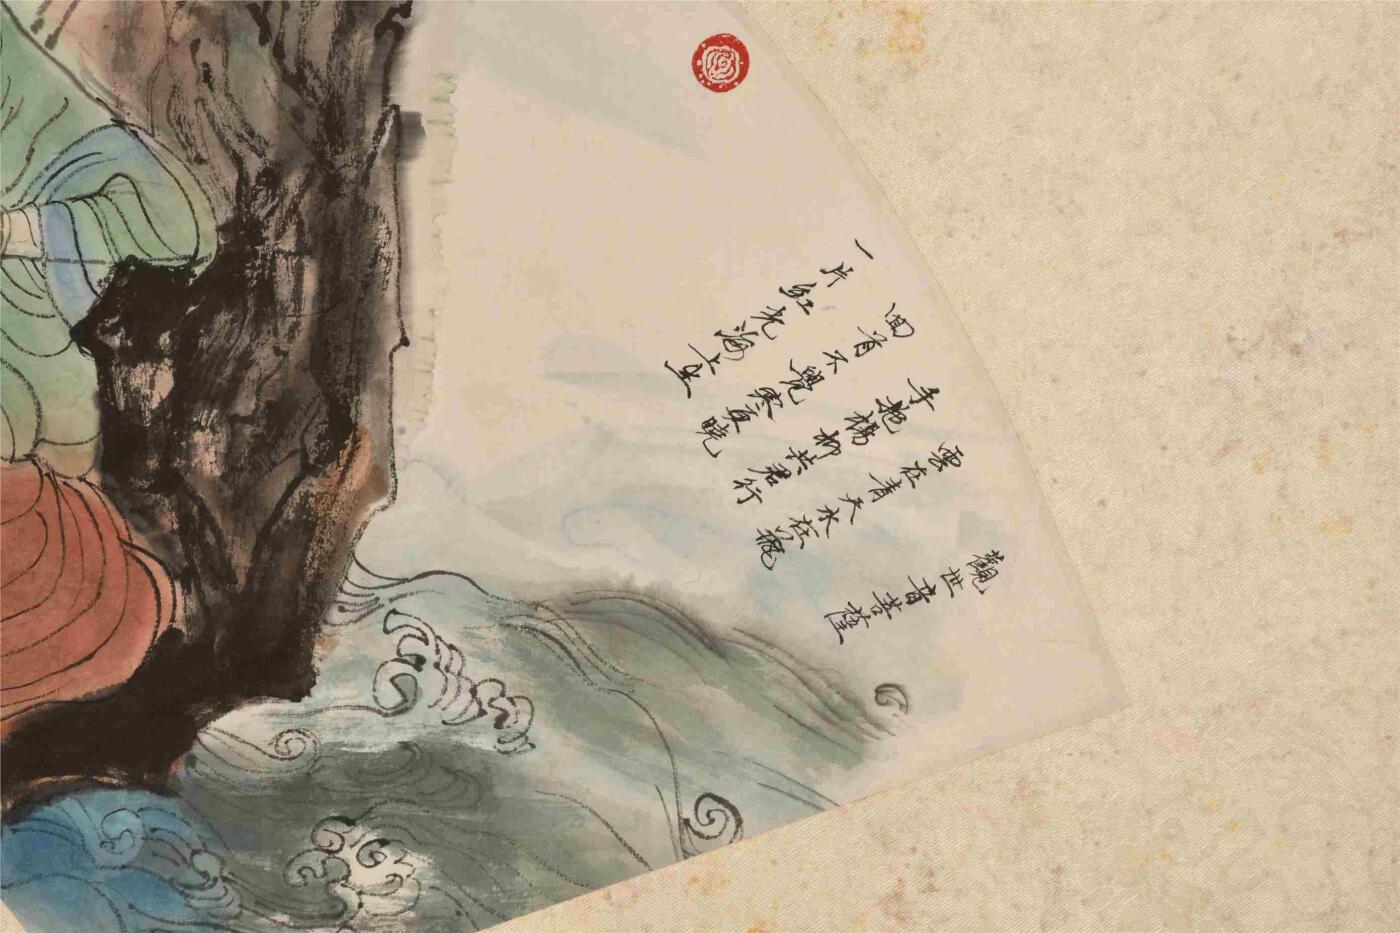 觀世音菩薩
雲在青天水在瓶
手拖楊柳共君行
回首不覺寒夜曉
一片紅光海上生